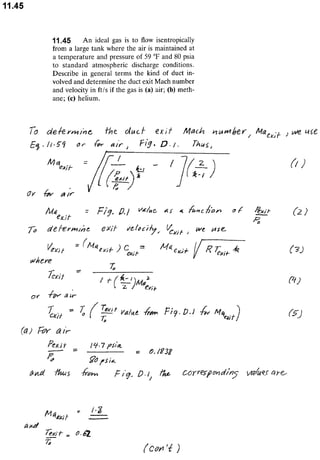 11.45
11.45 An ideal gas is to flow isentropically
from a large tank where the air is maintained at
a temperature and pressure of 59 °F and 80 psia
to standard atmospheric discharge conditions.
Describe in general terms the kind of duct in-
volved and determine the duct exit Mach number
and velocity in ft/s if the gas is (a) air; (b) meth-
ane; (c) helium.
To determine the duct exit Mach number, Ma_exit, we use
Eq. 11.59 or for air, Fig. D.1. Thus,
Ma_exit = √{[1/(P_exit/P_0)^((k-1)/k) - 1](2/(k-1))} (1)
or for air
Ma_exit = Fig. D.1 value as a function of P_exit/P_0 (2)
To determine exit velocity, V_exit, we use
V_exit = (Ma_exit) c_exit = Ma_exit √(R T_exit k) (3)
where
T_exit = T_0/(1 + ((k-1)/2) Ma²_exit) (4)
or for air
T_exit = T_0 (T_exit/T_0 value from Fig. D.1 for Ma_exit) (5)
(a) For air
P_exit/P_0 = 14.7 psia/80 psia = 0.1838
and thus from Fig. D.1, the corresponding values are
Ma_exit = 1.8
and
T_exit/T_0 = 0.62
(con't)